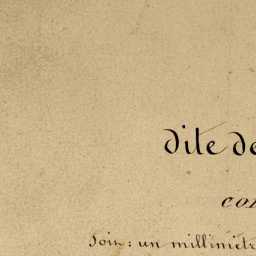 dite de
con
Soin: un millimètr